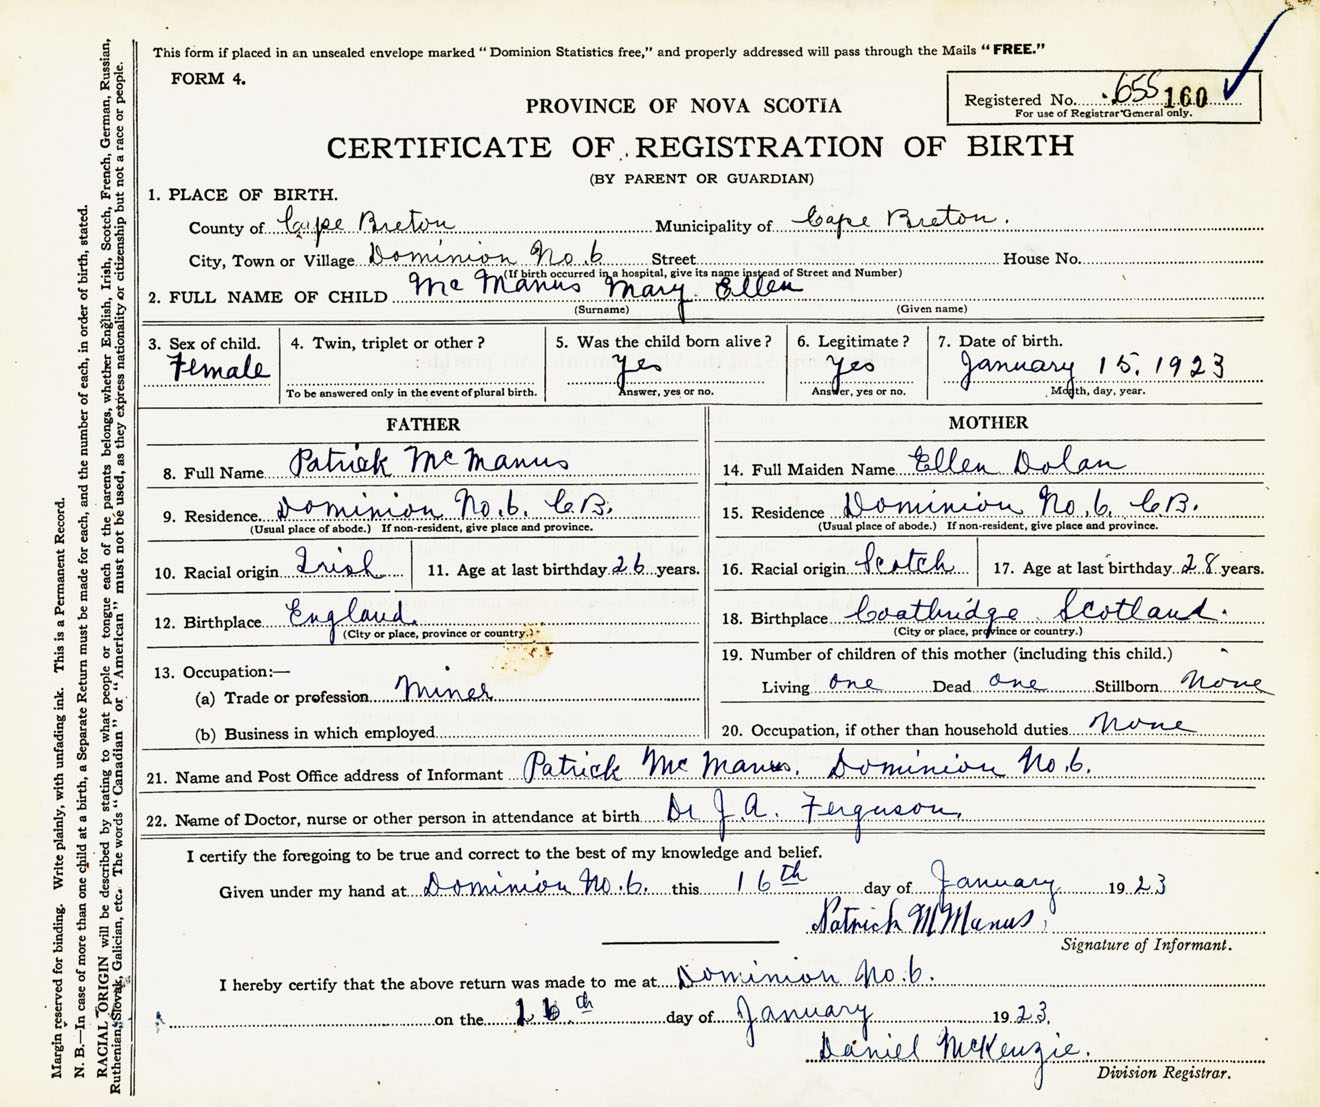 This form if placed in an unsealed envelope marked "Dominion Statistics free," and properly addressed will pass through the Mails "FREE."
FORM 4.
Registered No. 655 160
For use of Registrar General only.
PROVINCE OF NOVA SCOTIA
CERTIFICATE OF REGISTRATION OF BIRTH
(BY PARENT OR GUARDIAN)
1. PLACE OF BIRTH.
County of Cape Breton Municipality of Cape Breton.
City, Town or Village Dominion No. 6 Street House No.
(If birth occurred in a hospital, give its name instead of Street and Number)
2. FULL NAME OF CHILD Mc Manus Mary Ellen
(Surname) (Given name)
3. Sex of child. 4. Twin, triplet or other? 5. Was the child born alive? 6. Legitimate? 7. Date of birth.
Female Yes Yes January 15. 1923
To be answered only in the event of plural birth. Answer, yes or no. Answer, yes or no. Month, day, year.
FATHER MOTHER
8. Full Name Patrick Mc Manus 14. Full Maiden Name Ellen Dolan
9. Residence Dominion No. 6. C.B. 15. Residence Dominion No. 6. C.B.
(Usual place of abode.) If non-resident, give place and province. (Usual place of abode.) If non-resident, give place and province.
10. Racial origin Irish 11. Age at last birthday 26 years. 16. Racial origin Scotch 17. Age at last birthday 28 years.
12. Birthplace England. 18. Birthplace Coatbridge Scotland.
(City or place, province or country.) (City or place, province or country.)
13. Occupation:— 19. Number of children of this mother (including this child.)
(a) Trade or profession Miner Living one Dead one Stillborn None
(b) Business in which employed 20. Occupation, if other than household duties None
21. Name and Post Office address of Informant Patrick Mc Manus. Dominion No. 6.
22. Name of Doctor, nurse or other person in attendance at birth Dr J. A. Ferguson.
I certify the foregoing to be true and correct to the best of my knowledge and belief.
Given under my hand at Dominion No. 6. this 16th day of January 1923
Patrick McManus.
Signature of Informant.
I hereby certify that the above return was made to me at Dominion No. 6.
on the 16th day of January 1923.
Daniel McKenzie.
Division Registrar.
Margin reserved for binding. Write plainly, with unfading ink. This is a Permanent Record.
N. B.—In case of more than one child at a birth, a Separate Return must be made for each, and the number of each, in order of birth, stated.
RACIAL ORIGIN will be described by stating to what people or tongue each of the parents belongs, whether English, Irish, Scotch, French, German, Russian,
Ruthenian, Slovak, Galician, etc. The words "Canadian" or "American" must not be used, as they express nationality or citizenship but not a race or people.